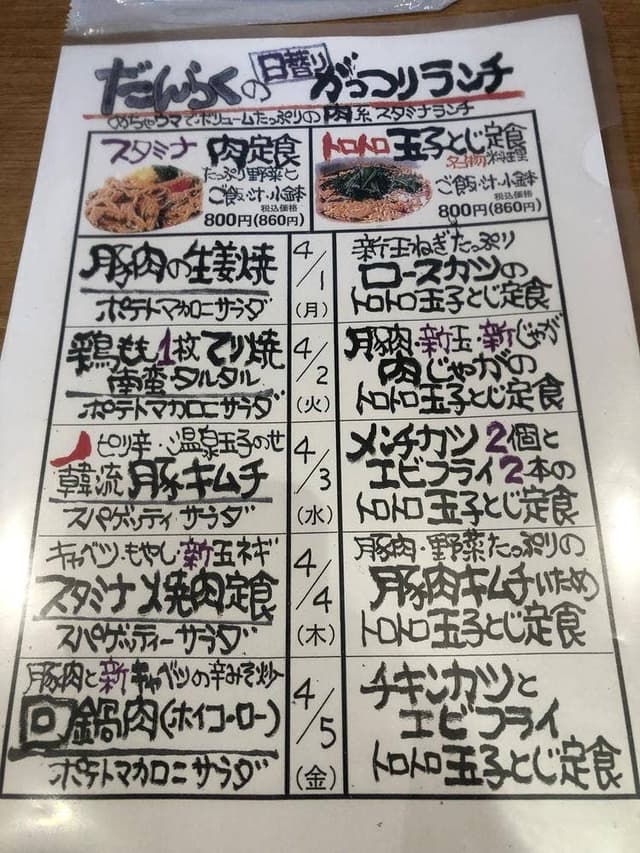 だんらくの日替りがっつりランチ
めちゃウマでボリュームたっぷりの肉系スタミナランチ
スタミナ 肉定食
たっぷり野菜と
ご飯・汁・小鉢
税込価格
800円(860円)
トロトロ 玉子とじ定食
名物料理
ご飯・汁・小鉢
税込価格
800円(860円)
豚肉の生姜焼
ポテトマカロニサラダ
4/1
(月)
新玉ねぎたっぷり
ロースカツの
トロトロ玉子とじ定食
鶏もも1枚てり焼
南蛮・タルタル
ポテトマカロニサラダ
4/2
(火)
豚肉・新玉・新じゃが
肉じゃがの
トロトロ玉子とじ定食
ピリ辛・温泉玉子のせ
韓流 豚キムチ
スパゲッティサラダ
4/3
(水)
メンチカツ2個と
エビフライ2本の
トロトロ玉子とじ定食
キャベツ・もやし・新玉ネギ
スタミナ焼肉定食
スパゲッティーサラダ
4/4
(木)
豚肉・野菜たっぷりの
豚肉キムチいため
トロトロ玉子とじ定食
豚肉と新キャベツの辛みそ炒
回鍋肉(ホイコ・ロー)
ポテトマカロニサラダ
4/5
(金)
チキンカツと
エビフライ
トロトロ玉子とじ定食